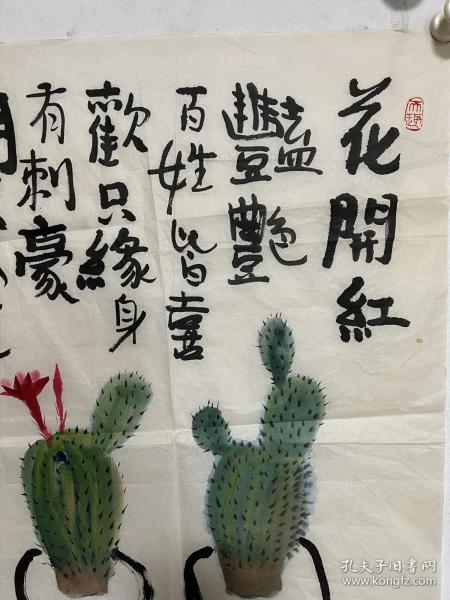 花開紅
豔艷
百姓皆喜
歡只緣身
有刺豪
孔夫子旧书网
www.kongfz.com